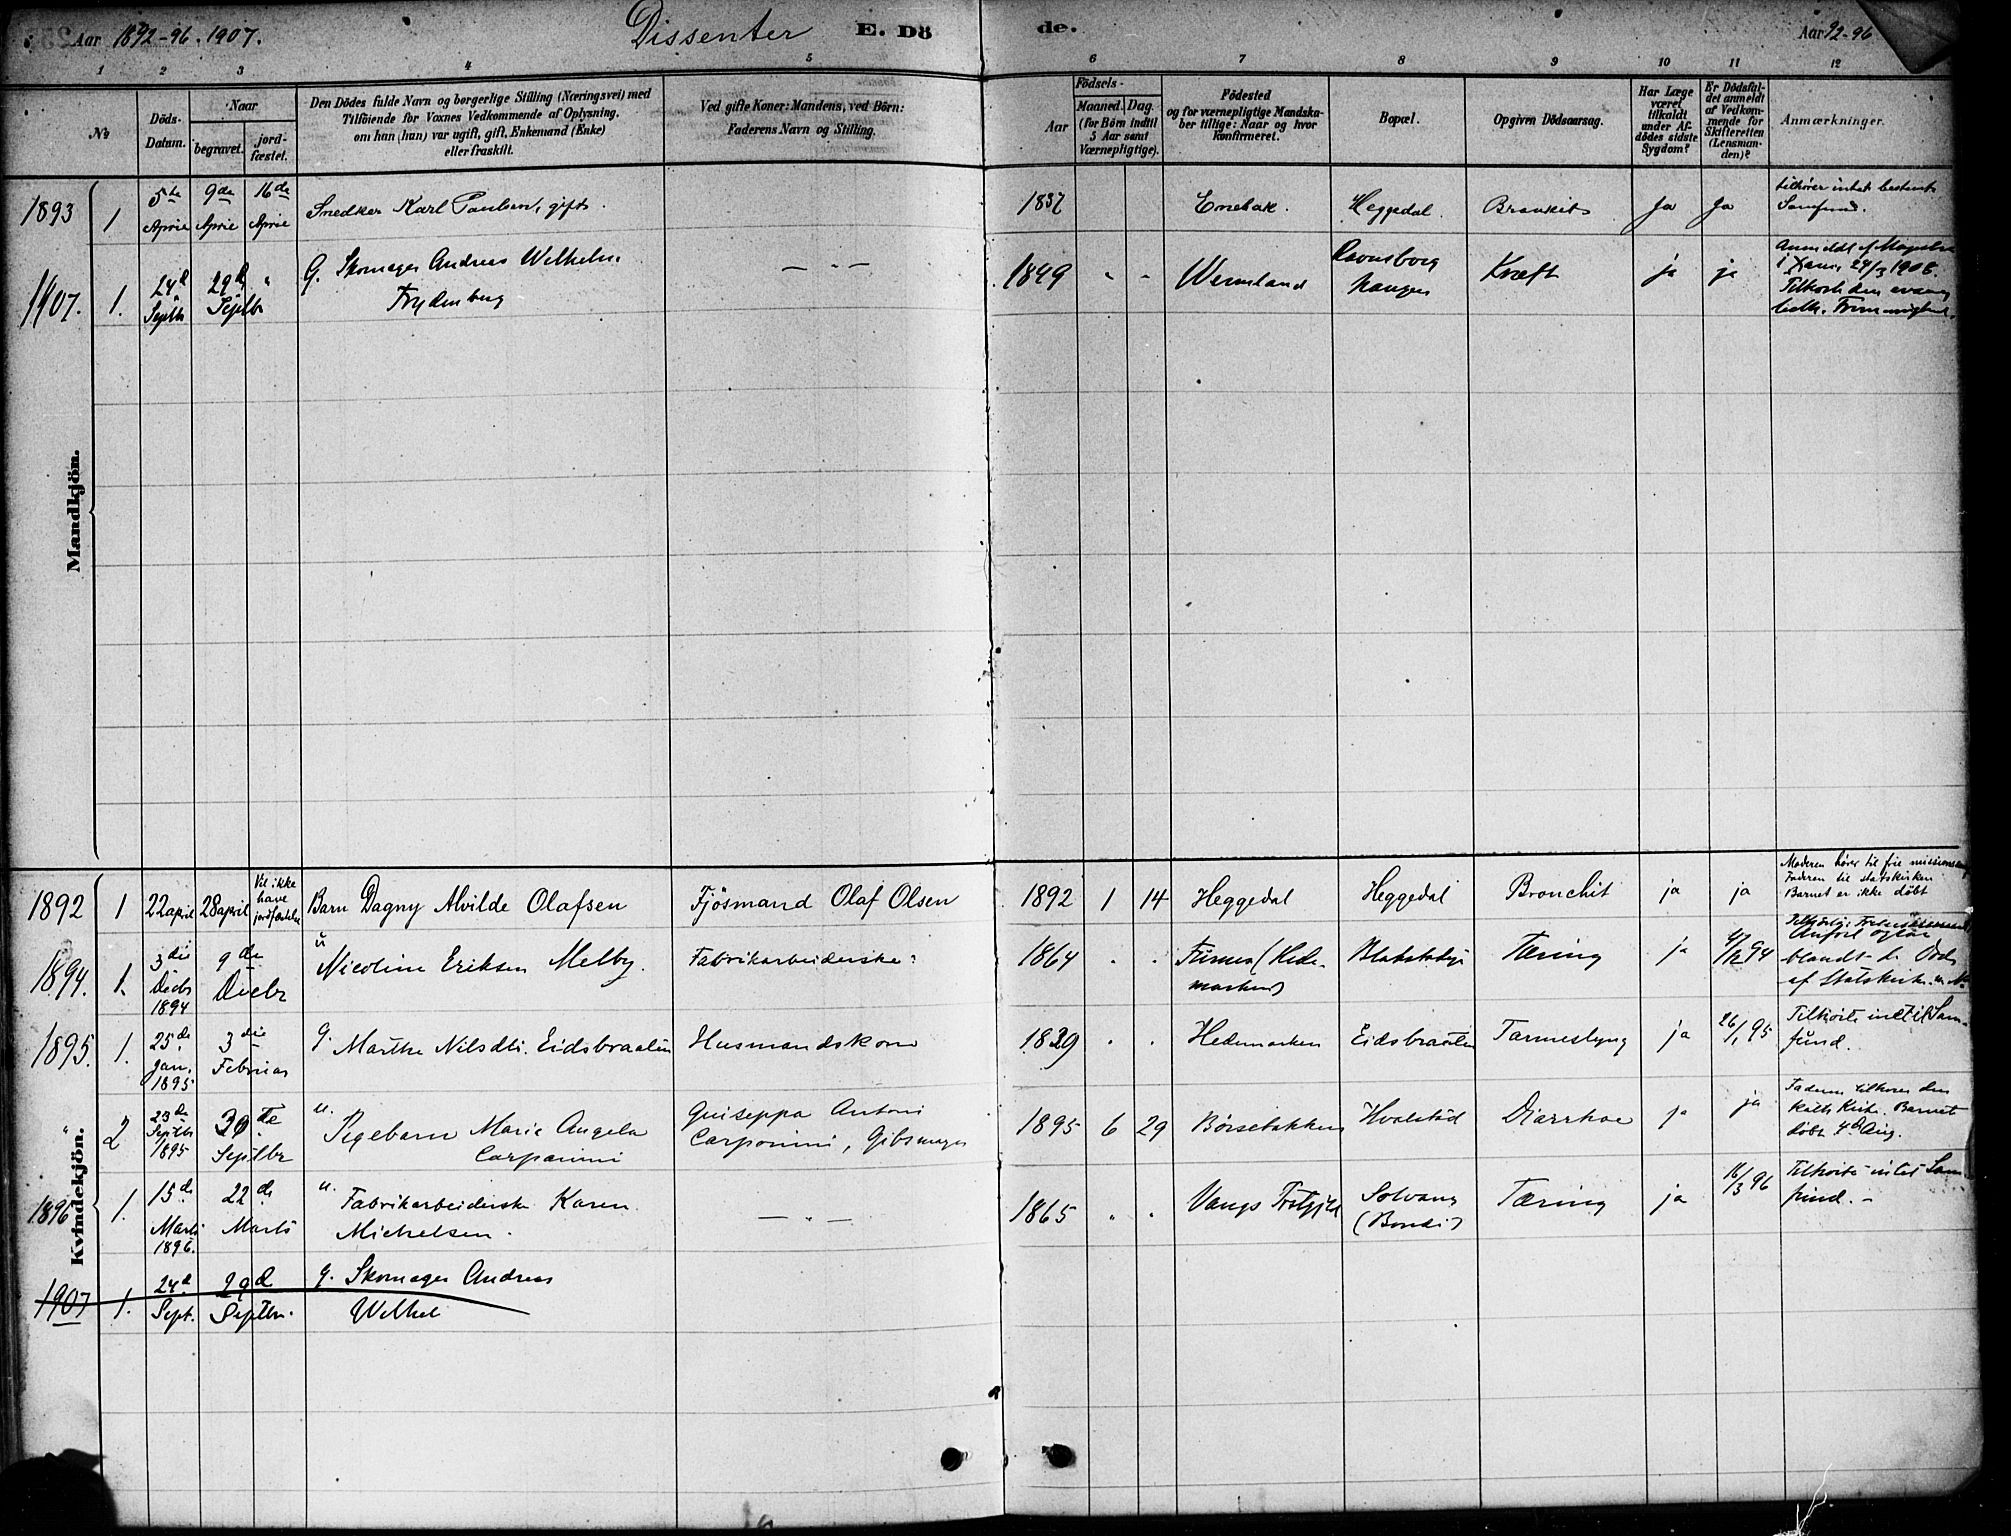 Aar 1892-96. 1907.
Dissenter
E. Dö
de.
Aar 92-96
1 2 3 4 5 6 7 8 9 10 11 12
No
Döds-Datum.
Naar
begravet.
jord-fæstet.
Den Dödes fulde Navn og borgerlige Stilling (Næringsvei) med
Tilföiende for Voxnes Vedkommende af Oplysning,
om han (hun) var ugift, gift, Enkemand (Enke)
eller fraskilt.
Ved gifte Koner: Mandens, ved Börn:
Faderens Navn og Stilling.
Födsels-
Aar
Maaned. Dag.
(for Börn indtil
5 Aar samt
Værnepligtige).
Födested
og for værnepligtige Mandska-
ber tillige: Naar og hvor
konfirmeret.
Bopæl.
Opgiven Dödsaarsag.
Har Læge
været
tilkaldt
under Af-
dödes sidste
Sygdom?
Er Dödsfal-
det anmeldt
af Vedkom-
mende for
Skifteretten
(Lensman-
den)?
Anmærkninger.
Mandkjön.
1893 1 5te April 9de April 16de April Snedker Karl Paulsen, gift. 1837 Enebak. Heggedal. Bronkit Ja Ja
tilhører intet bestemt
Samfund.
1907. 1. 24d Septbr 29d Septbr " G. Skomager Andreas Wilhelm
Frydenberg
— " — 1849 " " Wermland Ravnsborg
Kræft ja ja
24/3 1908.
Kvindekjön.
1892 1 22 april 28 april Vil ikke
have
jordfæstelse
Barn Dagny Alvilde Olafsen Fjösmand Olaf Olsen 1892 1 14 Heggedal Heggedal Bronchit ja ja
Moderen hører til frie mission
Faderen til statskirken
Barnet er ikke døbt
1894. 1. 3die Decbr 1894 9de Decbr u Nicoline Eriksen Melby. Fabrikarbeiderske 1864 " " (Hede-
marken)
Tæring ja 4/12 94
af Statskirken
1895. 1. 25de Jan. 1895 3die Februar g. Marthe Nilsdtr. Eidsbraaten Husmandskone 1829 " " Hedemarken Eidsbraaten ja 26/1 95
Tilhörte intet Sam-
fund.
" 2 23de Septbr 1895 30te Septbr u. Pigebarn Marie Angela
Carponini
Guiseppa Antoni
Carponini, Gibsmager
1895 6 29 Hvalstad Diarrhoe ja ja
Faderen tilhører den
kath Kirke. Barnet
døbt 4d Aug.
1896 1. 15de Marts 1896. 22de Marts u. Fabrikarbeiderske Karen
Michelsen.
— " — 1865 " " Vangs Prstgjld Solvang
(Bondi)
Tæring ja 16/3 96
Tilhörte intet Sam
fund. -
1907 1. 24d Sept. 29d Septbr. g. Skomager Andreas
Wilhel